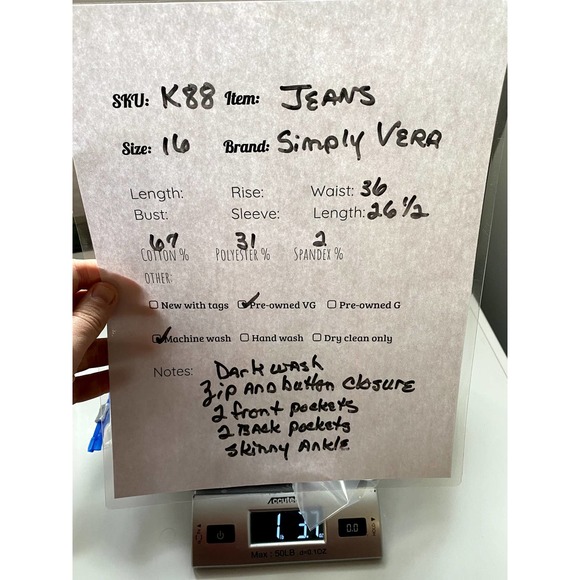 SKU: K88 Item: JEANS
Size: 16 Brand: Simply VERA
Length: Rise: Waist: 36
Bust: Sleeve: Length: 26 1/2
67 31 2
COTTON % POLYESTER % SPANDEX %
OTHER:
New with tags Pre-owned VG Pre-owned G
Machine wash Hand wash Dry clean only
Notes: Dark wash
Zip AND button closure
2 front pockets
2 BACK pockets
skinny Ankle
Accute
1.37 0.0
Max: 50LB d=0.1OZ